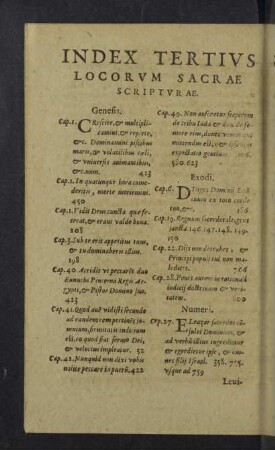 INDEX TERTIVS
LOCORVM SACRAE
SCRIPTVRAE.
Genesis.
Cap.1. Crescite, & multipli
camini, & replete,
&c. Dominamini piscibus
maris, & volatilibus cœli,
& vniuersis animantibus,
& c. num. 423
Cap.2. In quacunque hora come
deritis, morte moriemini.
450
Cap.1. Vidit Deus cuncta quæ fe
cerat, & erant valde bona.
208
Cap.3. Sub te erit appetitus tuus,
& tu dominaberis illius.
198
Cap.40. Accidit vt peccarẽt duo
Eunuchi Pincerna Regis Aegypti,
& Pistor Domino suo.
423
Cap.41. Quod aũt vidisti secundo
ad eandem rem pertinẽs so-
mnium, firmitatis indicium
est. eo quod fiat sermo Dei,
& velocius impleatur. 52
Cap.42. Nunquid non dixi vobis
nolite peccare in puerũ. 422
Cap.49. Non auferetur sceptrum
de tribu Iuda & dux de fe-
more eius, donec veniat qui
mittendus est, & ipse erit
expectatio gentium.
560. 623
Exodi.
Cap.6.
Cap.19. Regnum sacerdotale gens
sancta 146. 147. 148. 149.
150
Cap.22. Diis non detrahes, &
Principi populi tui non ma-
ledices. 766
Cap.28. Pones autem in rationali
iudicij doctrinam & veri-
tatem. 600
Numeri.
Cap.27. Eleazar sacerdos cõ
sulet Dominum, &
ad verbũ illius ingredietur
& egredietur ipse, & om-
nes filij Israel. 358. 705.
vsque ad 759
Leui-